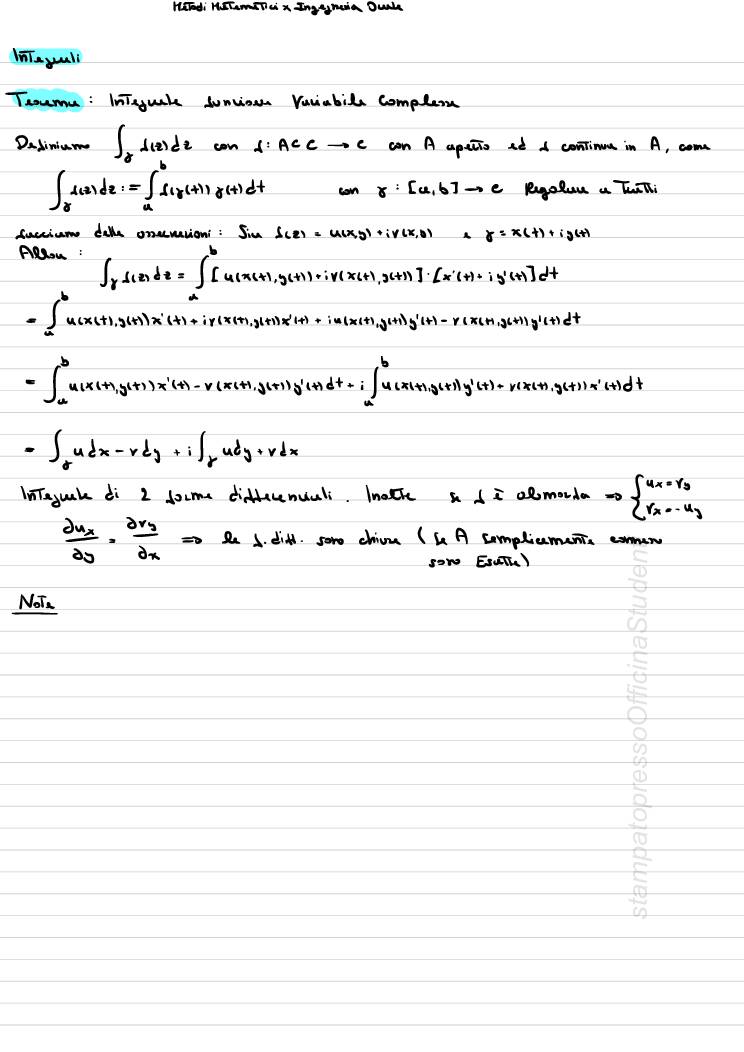 Metodi Matematici x Ingegneria Orale
Integrali
Teorema : Integrale funzione Variabile Complessa
Definiamo ∫_γ f(z)dz con f: A⊂C → C con A aperto ed f continua in A, come
∫_γ f(z)dz := ∫_a^b f(γ(t)) γ(t)dt con γ : [a,b] → C Regolare a Tratti
facciamo delle osservazioni : Sia f(z) = u(x,y)+iv(x,y) e γ = x(t)+iy(t)
Allora :
∫_γ f(z)dz = ∫_a^b [u(x(t),y(t))+iv(x(t),y(t))]·[x'(t)+iy'(t)]dt
= ∫_a^b u(x(t),y(t))x'(t)+iv(x(t),y(t))x'(t)+iu(x(t),y(t))y'(t)-v(x(t),y(t))y'(t)dt
= ∫_a^b u(x(t),y(t))x'(t)-v(x(t),y(t))y'(t)dt+i∫_a^b u(x(t),y(t))y'(t)+v(x(t),y(t))x'(t)dt
= ∫_γ udx-vdy +i∫_γ udy+vdx
Integrale di 2 forme differenziali. Inoltre se f è olomorfa ⇒ {ux=vy
{vx=-uy
∂ux/∂y = ∂vy/∂x ⇒ le f.diff. sono chiuse (se A semplicemente connesso
sono Esatte)
Note
stampatopressoOfficinaStudent